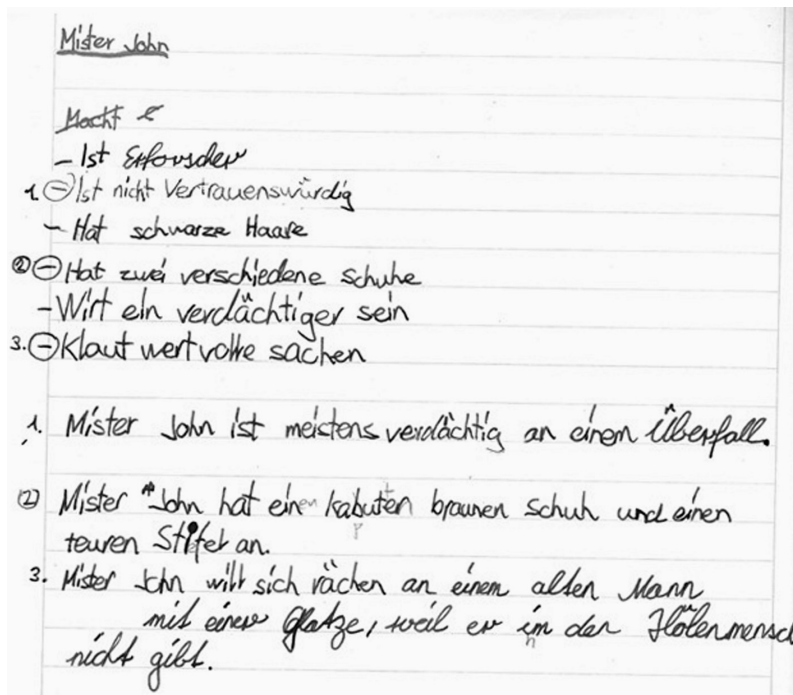 Mister John
Macht
- Ist Erforscher
1. - Ist nicht Vertrauenswürdig
- Hat schwarze Haare
2 - Hat zwei verschiedene schuhe
- Wirt ein verdächtiger sein
3. - Klaut wertvolle sachen
1. Mister John ist meistens verdächtig an einem Überfall.
2 Mister John hat einen kabuten braunen Schuh und einen
teuren Stifel an.
3. Mister John will sich rächen an einem alten Mann
mit einer Glatze, weil er ihn den Hölenmensch
nicht gibt.